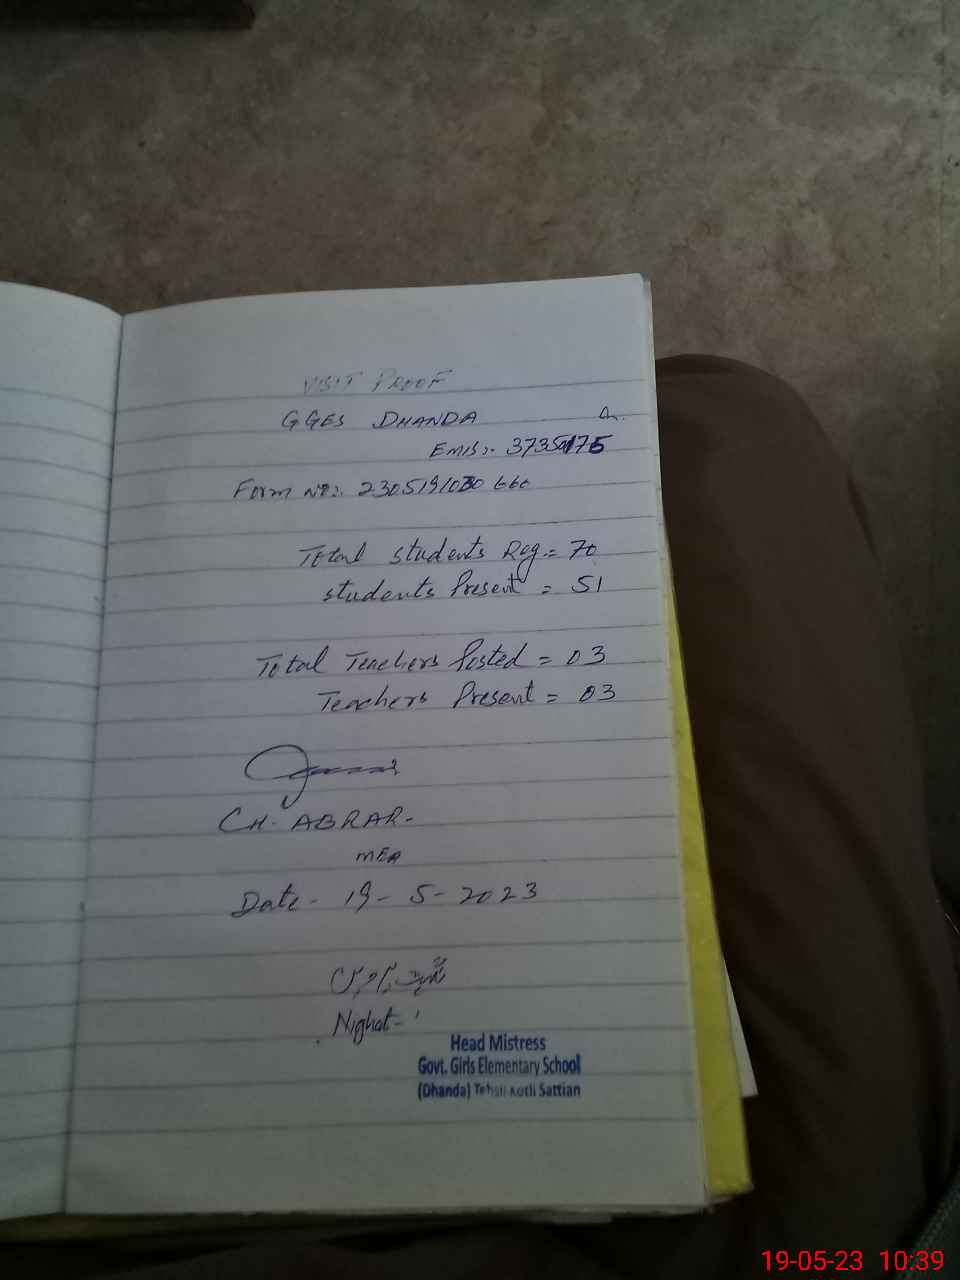 VISIT PROOF
GGES DHANDA
EMIS:- 37350175
Form No:- 2305191030660
Total students Reg = 70
students Present = 51
Total Teachers Posted = 03
Teachers Present = 03
CH. ABRAR-
MEA
Date- 19-5-2023
Nighat-
Head Mistress
Govt. Girls Elementary School
(Dhanda) Tehsil Kotli Sattian
19-05-23 10:39